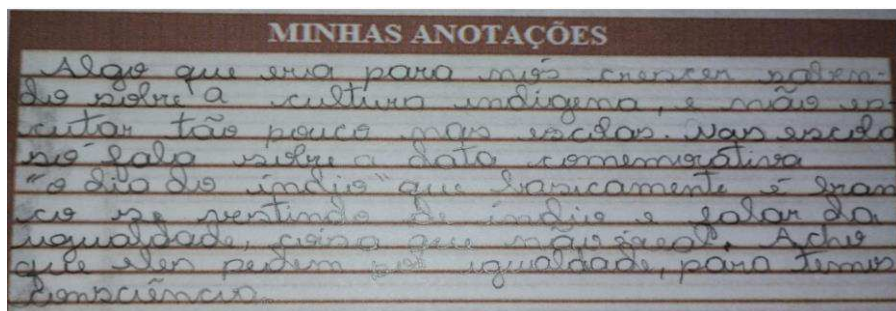 MINHAS ANOTAÇÕES
Algo que era para nós crescer saben-
do sobre a cultura indígena, e não es
cutar tão pouco nas escolas. Nas escola
só fala sobre a data comemorativa
"o dia do índio" que basicamente é bran
co se vestindo de índio e falar da
igualdade, coisa que não é real. Acho
que eles pedem igualdade, para temos
consciência.